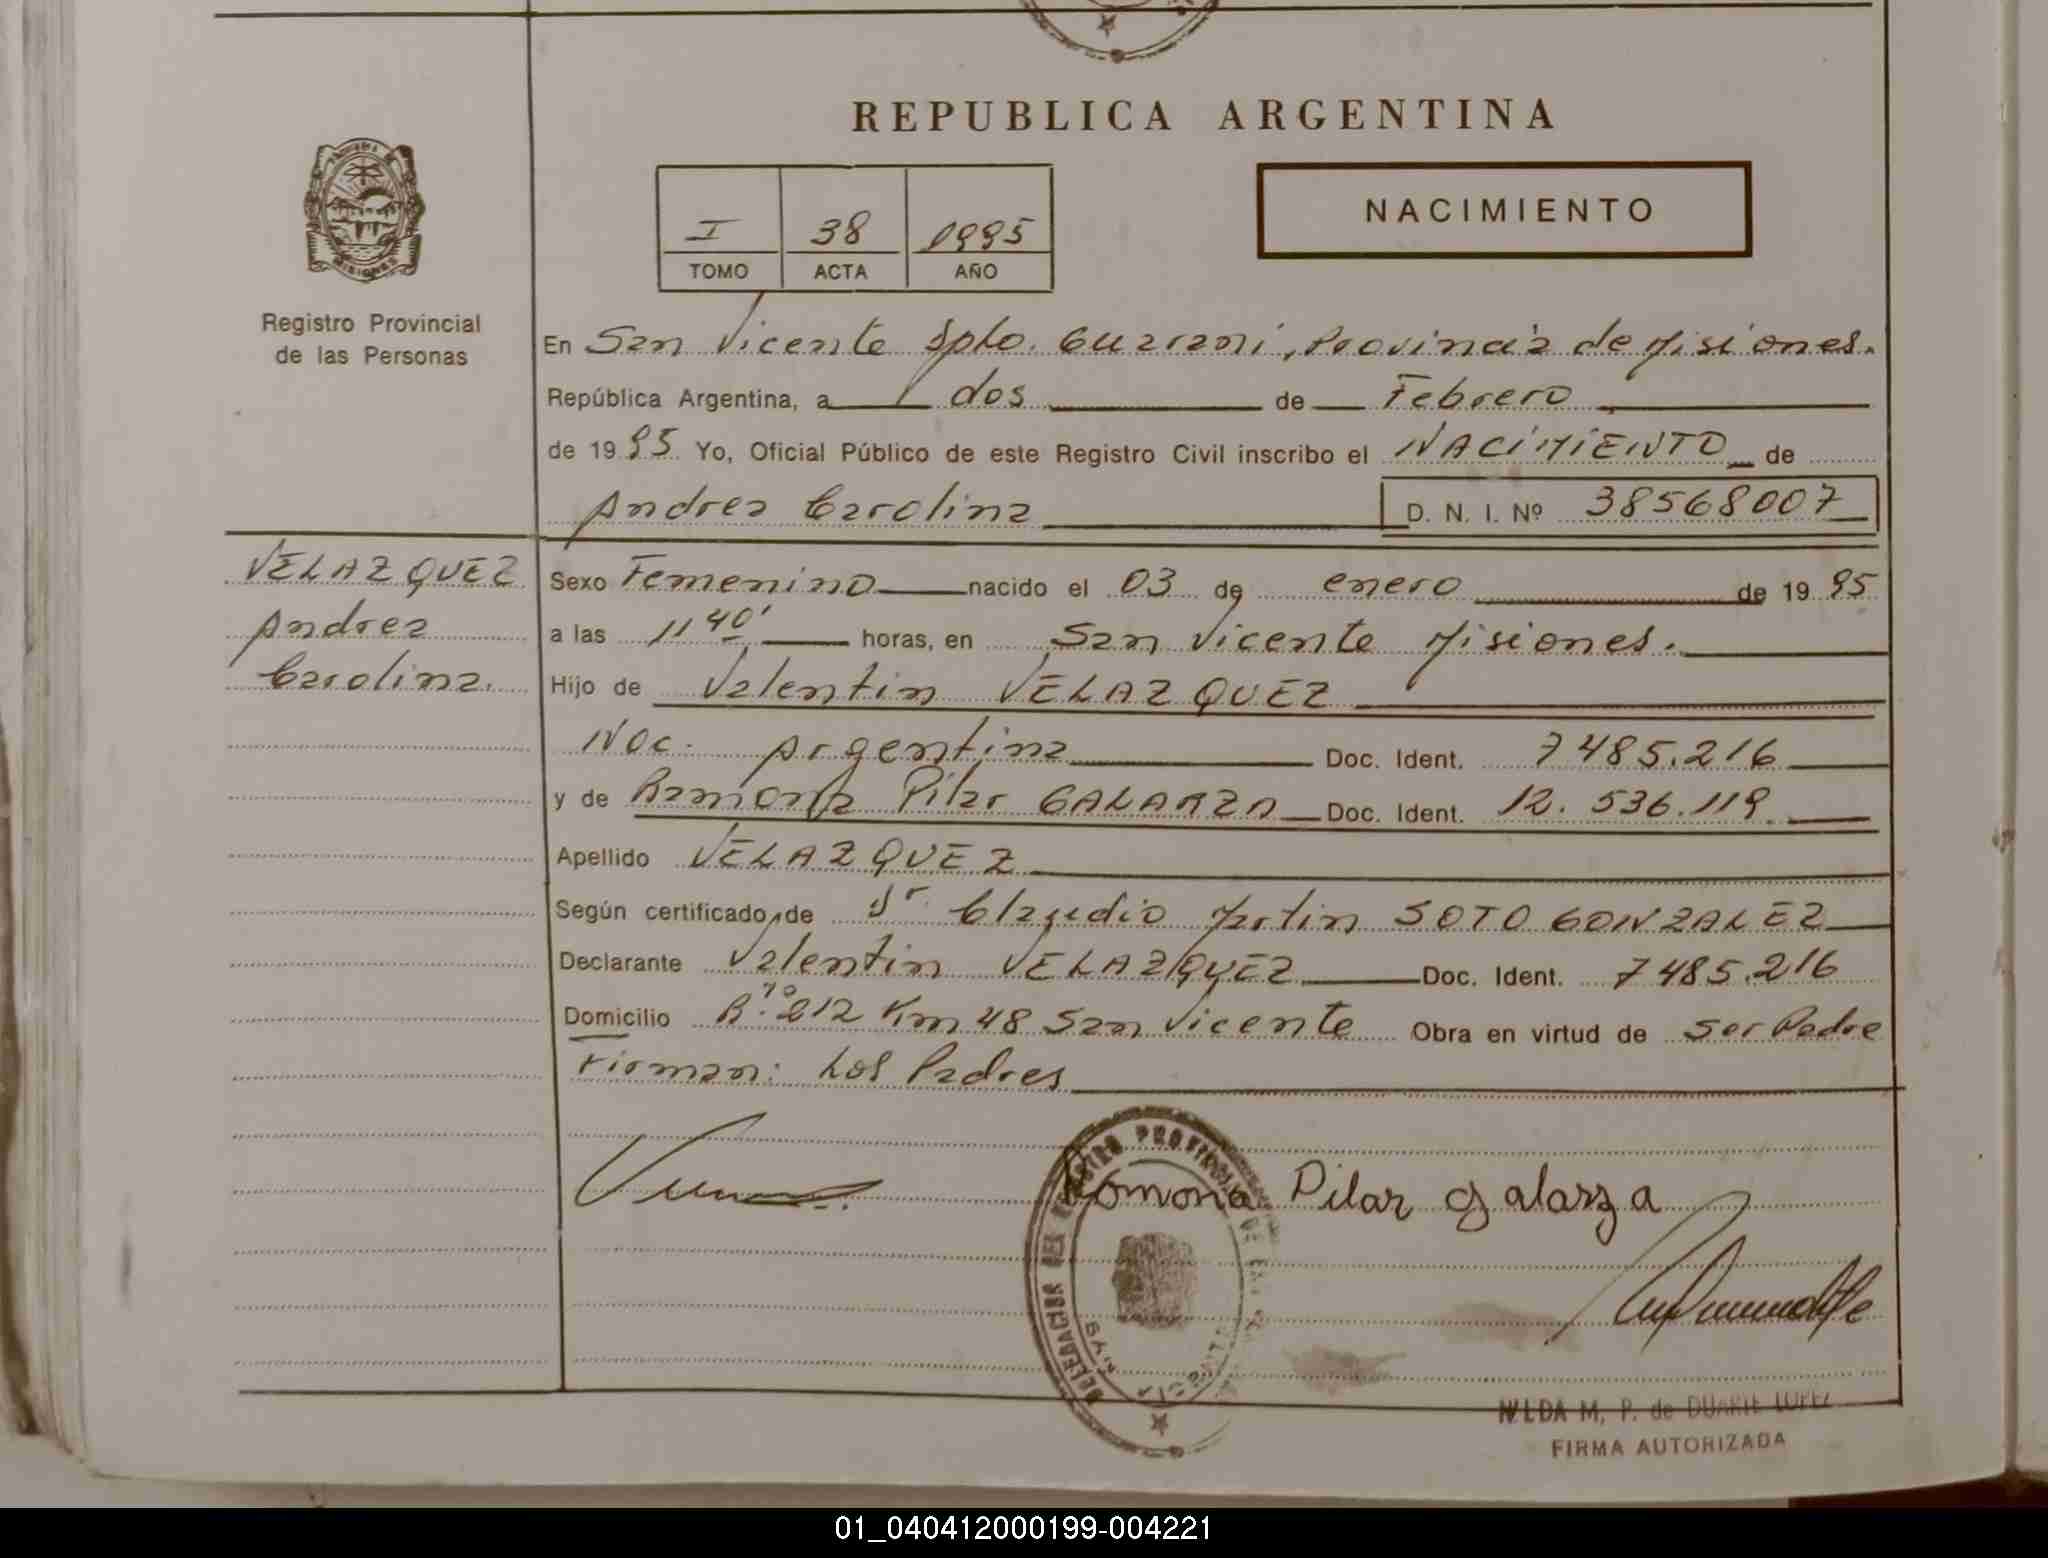 REPUBLICA ARGENTINA
MISIONES
Registro Provincial
de las Personas
I 38 1995
TOMO ACTA AÑO
NACIMIENTO
En San Vicente Dpto. Guarani, Provincia de Misiones.
República Argentina, a dos de Febrero
de 1995 Yo, Oficial Público de este Registro Civil inscribo el NACIMIENTO de
Andrea Carolina D. N. I. Nº 38568007
VELAZQUEZ
Andrea
Carolina.
Sexo Femenino nacido el 03 de enero de 1995
a las 11 40' horas, en San Vicente Misiones.
Hijo de Valentin VELAZQUEZ
Nac. Argentina Doc. Ident. 7485.216
y de Ramona Pilar GALARZA Doc. Ident. 12.536.119
Apellido VELAZQUEZ
Según certificado de Dr. Claudio Martin SOTO GONZALEZ
Declarante Valentin VELAZQUEZ Doc. Ident. 7485.216
Domicilio R. nº 212 Km 48 San Vicente Obra en virtud de ser Padre
Firman: Los Padres
Ramona Pilar galarza
DELEGACION DEL REGISTRO PROVINCIAL DE
M. P. de DUARTE LOPEZ
FIRMA AUTORIZADA
01_040412000199-004221